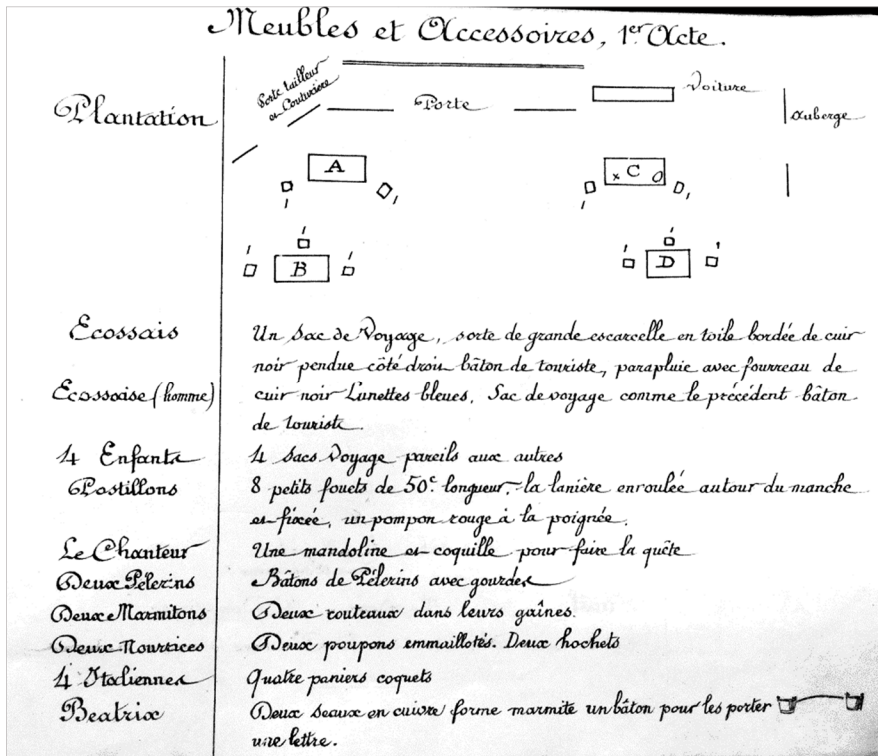 Meubles et Accessoires, 1er Acte.
Plantation
Porte tailleur
et Couturière
Porte
Voiture
Auberge
A
C
B
D
Ecossais Un Sac de Voyage, sorte de grande escarcelle en toile bordée de cuir
noir pendue côté droit bâton de touriste, parapluie avec fourreau de
Ecossaise (homme) cuir noir Lunettes bleues. Sac de voyage comme le précédent bâton
de touriste.
4 Enfants 4 Sacs Voyage pareils aux autres
Postillons 8 petits fouets de 50c. longueur, la lanière enroulée autour du manche
et fixée, un pompon rouge à la poignée.
Le Chanteur Une mandoline et coquille pour faire la quête
Deux Pélerins Bâtons de Pélerins avec gourdes
Deux Marmitons Deux couteaux dans leurs gaînes.
Deux Nourrices Deux poupons emmaillotés. Deux hochets
4 Italiennes Quatre paniers coquets
Beatrix Deux seaux en cuivre forme marmite un bâton pour les porter
une lettre.